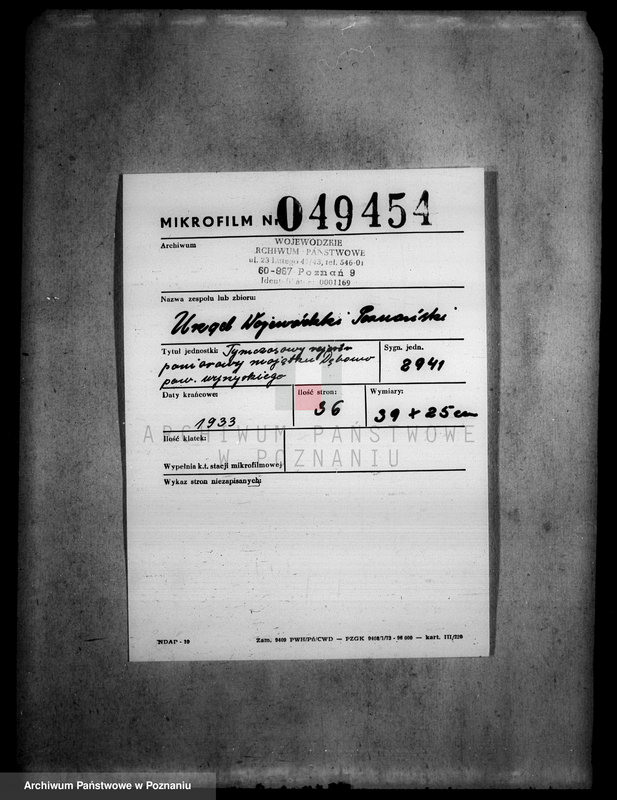 MIKROFILM Nr 049454
Archiwum
WOJEWÓDZKIE
ARCHIWUM PAŃSTWOWE
ul. 23 Lutego 41/43, tel. 546-01
60-967 Poznań 9
Identyfikator: 0001169
Nazwa zespołu lub zbioru:
Urząd Wojewódzki Poznański
Tytuł jednostki: Tymczasowy rejestr
pomiarowy majątku Dębowo
pow. wyrzyskiego
Sygn. jedn.
8941
Daty krańcowe:
1933
Ilość stron:
36
Wymiary:
39 x 25 cm
ARCHIWUM PAŃSTWOWE
W POZNANIU
Ilość klatek:
Wypełnia k.t. stacji mikrofilmowej
Wykaz stron niezapisanych:
NDAP - 10
Zam. 9409 PWH/Pó/CWD — PZGK 9408/1/73 - 96 000 — kart. III/220
Archiwum Państwowe w Poznaniu